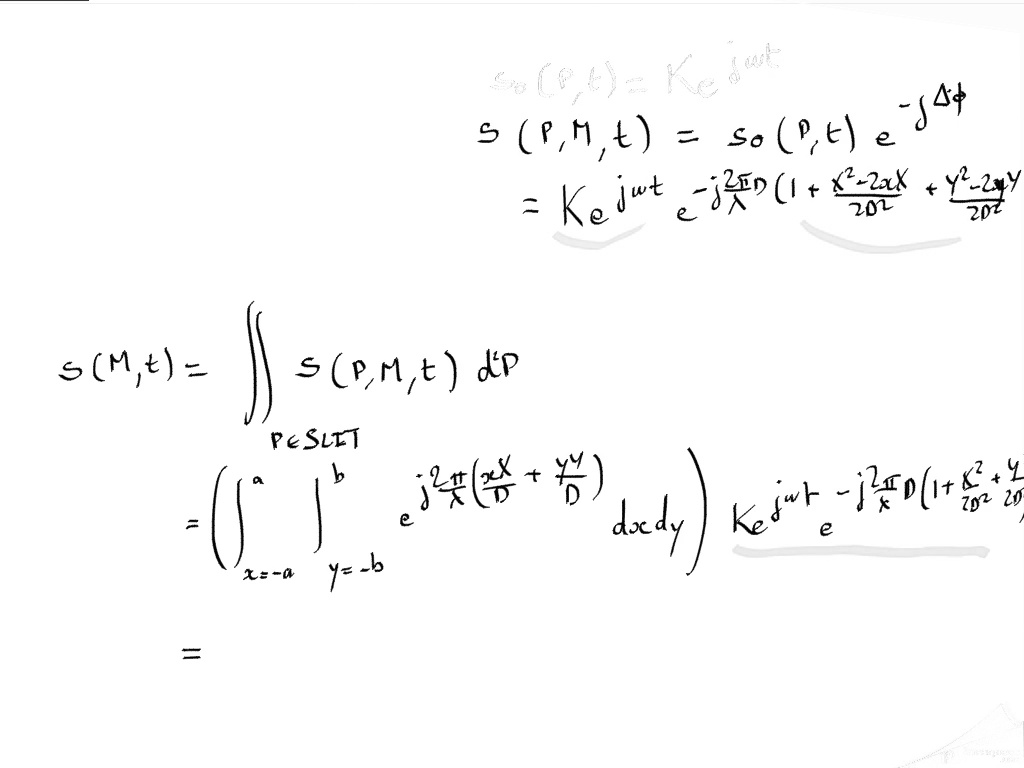 s₀(P,t) = K e^{jωt}
s(P,M,t) = s₀(P,t) e^{-jΔφ}
= K e^{jωt} e^{-j\frac{2π}{λ}D(1 + \frac{X²-2xX}{2D²} + \frac{Y²-2yY}{2D²}}
s(M,t) = ∬_{P∈SLIT} s(P,M,t) d²P
= (∫_{x=-a}^{a} ∫_{y=-b}^{b} e^{j\frac{2π}{λ}(\frac{xX}{D} + \frac{yY}{D})} dx dy) K e^{jωt} e^{-j\frac{2π}{λ}D(1 + \frac{X²}{2D²} + \frac{Y}{2D}}
=